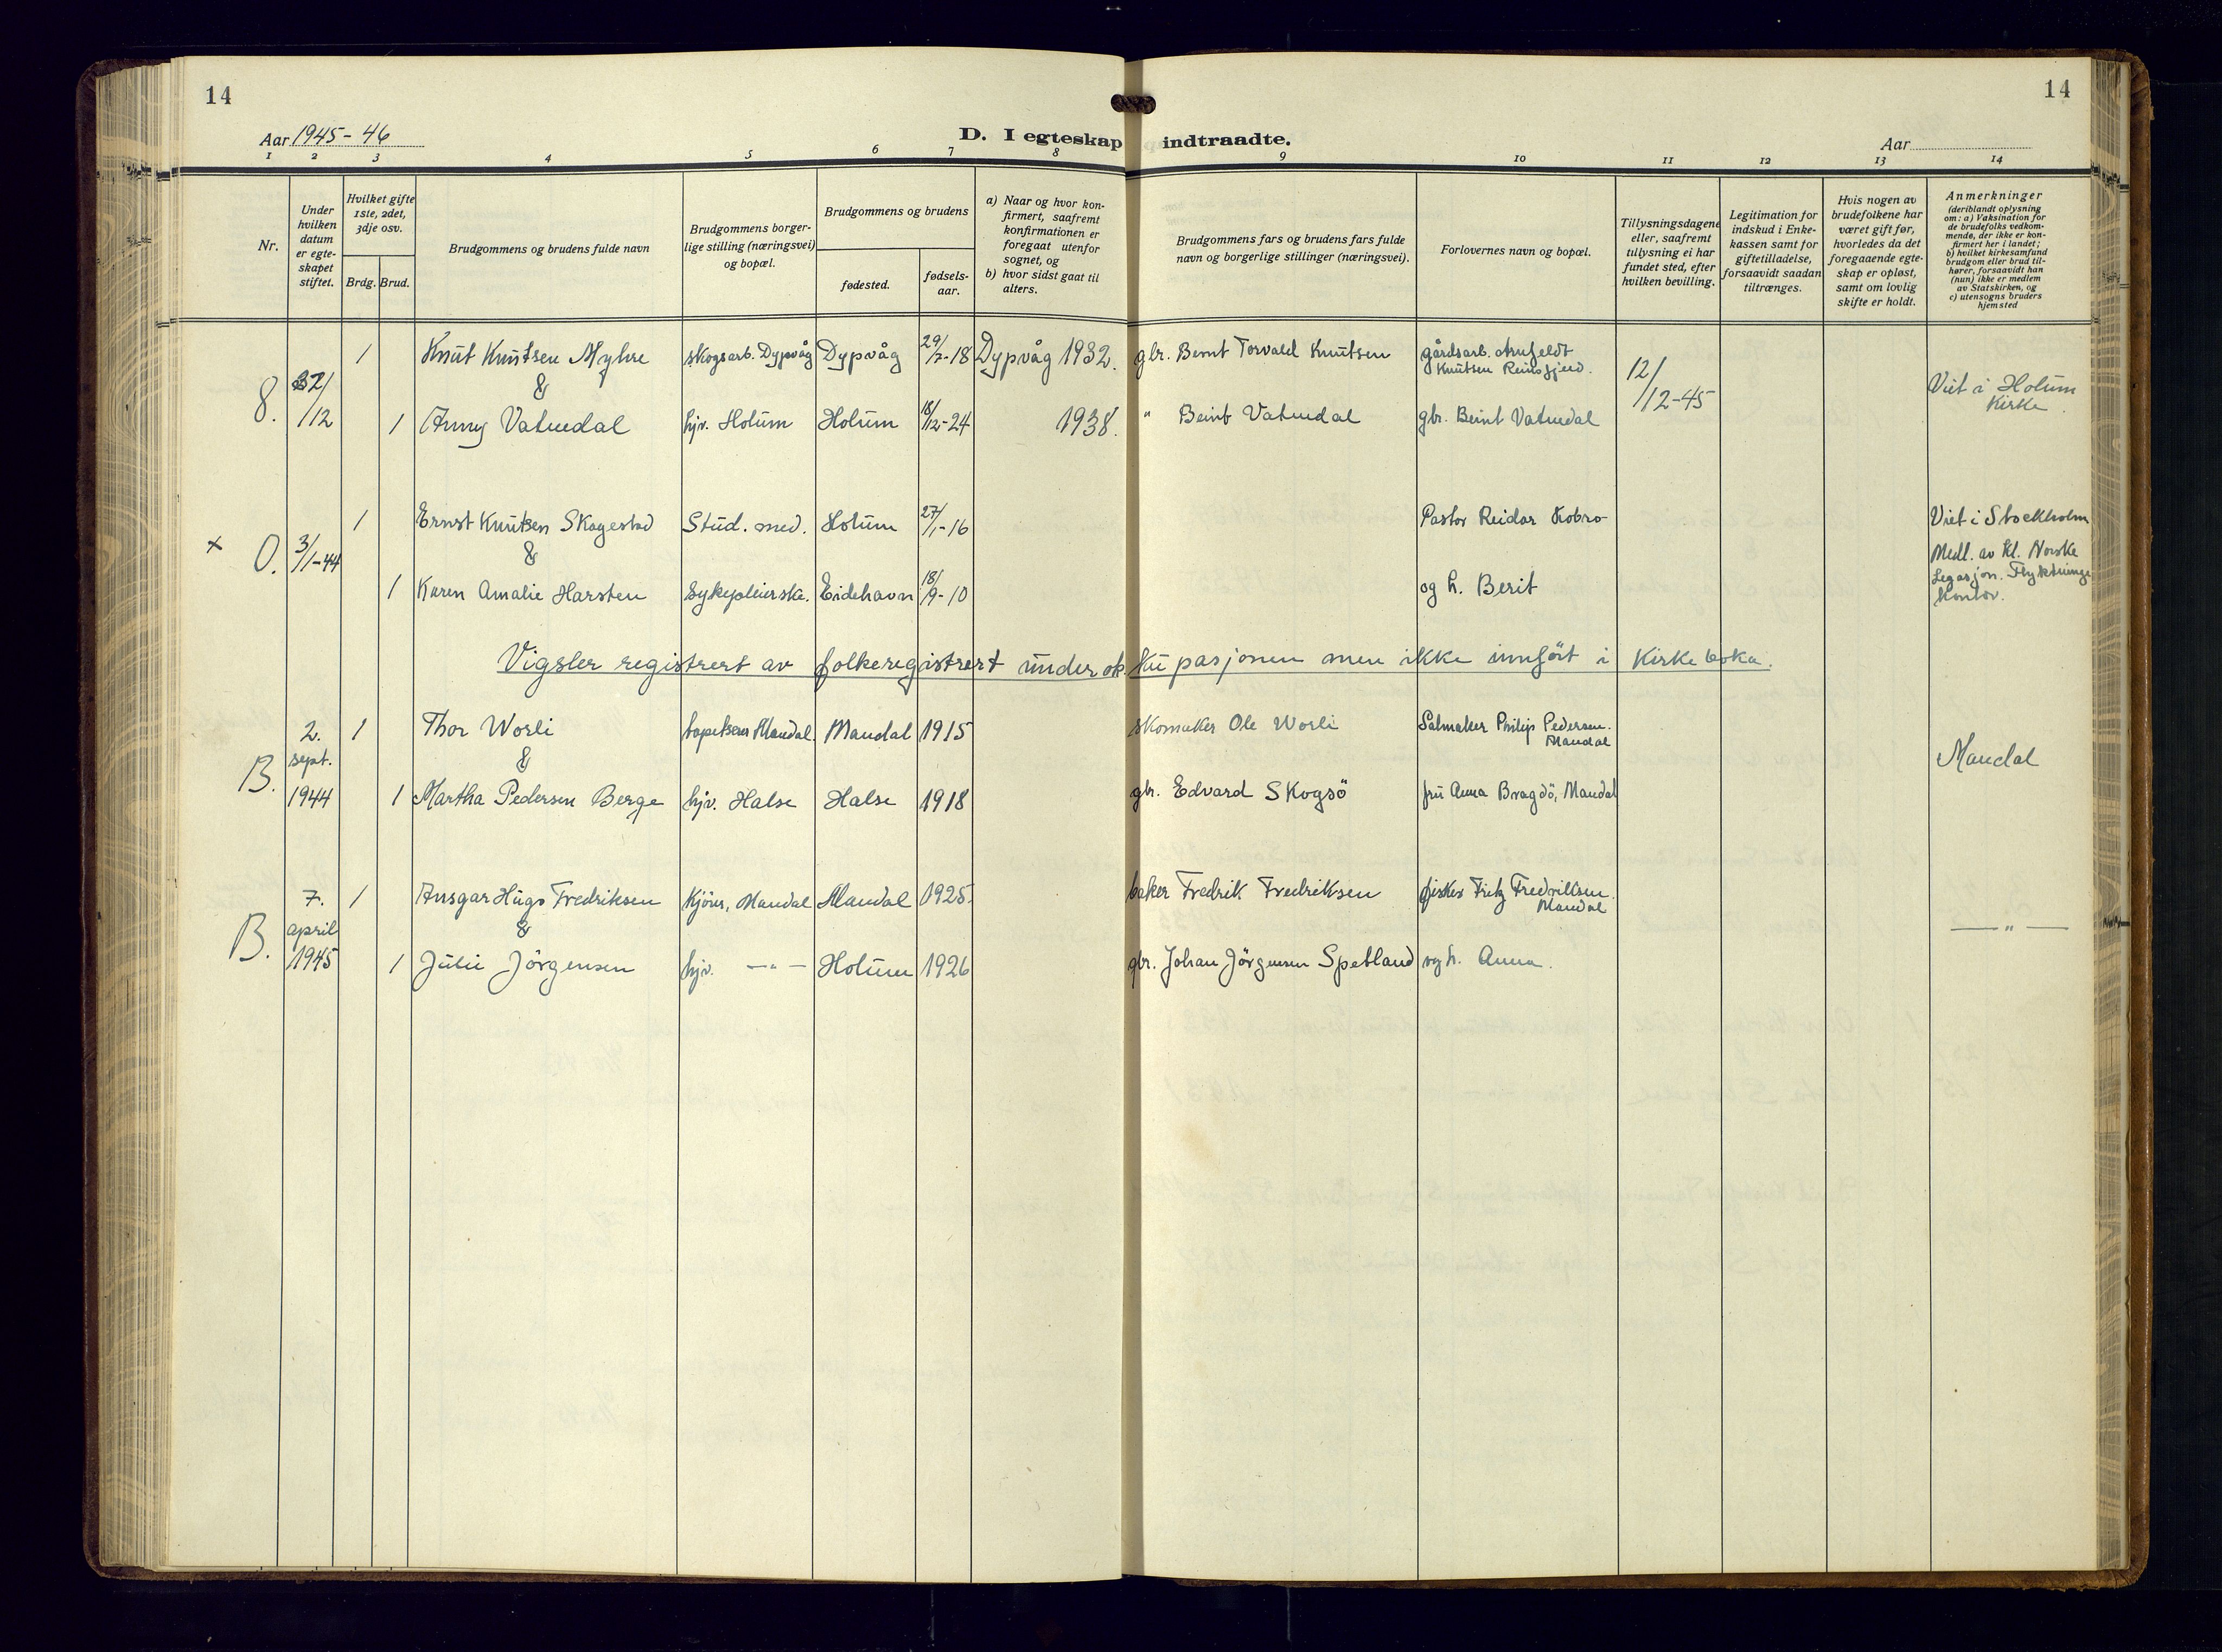 14
14
Aar 1945-46
D. I egteskap indtraadte.
Aar
1 2 3 4 5 6 7 8 9 10 11 12 13 14
Nr.
Under hvilken datum er egte-skapet stiftet.
Hvilket gifte 1ste, 2det, 3dje osv.
Brdg. Brud.
Brudgommens og brudens fulde navn
Brudgommens borger-
lige stilling (næringsvei)
og bopæl.
Brudgommens og brudens
fødested.
fødsels-
aar.
a) Naar og hvor kon-
firmert, saafremt
konfirmationen er
foregaat utenfor
sognet, og
b) hvor sidst gaat til
alters.
Brudgommens fars og brudens fars fulde
navn og borgerlige stillinger (næringsvei).
Forlovernes navn og bopæl.
Tillysningsdagene
eller, saafremt
tillysning ei har
fundet sted, efter
hvilken bevilling.
Legitimation for
indskud i Enke-
kassen samt for
giftetilladelse,
forsaavidt saadan
tiltrænges.
Hvis nogen av
brudefolkene har
været gift før,
hvorledes da det
foregaaende egte-
skap er opløst,
samt om lovlig
skifte er holdt.
Anmerkninger
(deriblandt oplysning
om: a) Vaksination for
de brudefolks vedkom-
mende, der ikke er kon-
firmert her i landet;
b) hvilket kirkesamfund
brudgom eller brud til-
hører, forsaavidt han
(hun) ikke er medlem
av Statskirken, og
c) utensogns bruders
hjemsted
1 Knut Knutsen Myhre skogsarb. Dypvåg Dypvåg 29/7-18 Dypvåg 1932. gbr. Bernt Torvald Knutsen gårdsarb. Arnfeldt
Knutsen
8. /12 & 12/12-45 Viet i Holum
Kirke.
1 Anny Vatnedal hjv. Holum Holum 18/12-24 1938. " Beint Vatnedal gbr. Beint Vatnedal
1 Ernst Knutsen Skagestad Stud. med. Holum 27/1-16 Pastor Reidar Kobro Viet i Stockholm
x 0. 3/1-44 & Medl. av Kl. Norske
Legasjon. Flyktninge
1 Karen Amalie Harsten Sykepleierske. Eidehavn 18/9-10 og h. Berit Kontor.
Vigsler registrert av folkeregistrert under okkupasjonen men ikke innført i Kirkeboka.
2. 1 Thor Worli tapetserer Mandal. Mandal 1915 skomaker Ole Worli Salmaker Philip Pedersen.
Mandal
B. sept. & Mandal
1944 1 Martha Pedersen Berge hjv. Halse Halse 1918 gbr. Edvard Skogsö fru Anna Bragdö, Mandal
7. 1 Ansgar Hugo Fredriksen Mandal Mandal 1925. baker Fredrik Fredriksen fisker Fritz Fredriksen.
Mandal
B. april & — " —
1945 1 Julie Jörgensen hjv. — " — Holum 1926 gbr. Johan Jörgensen Spetland og h. Anna.